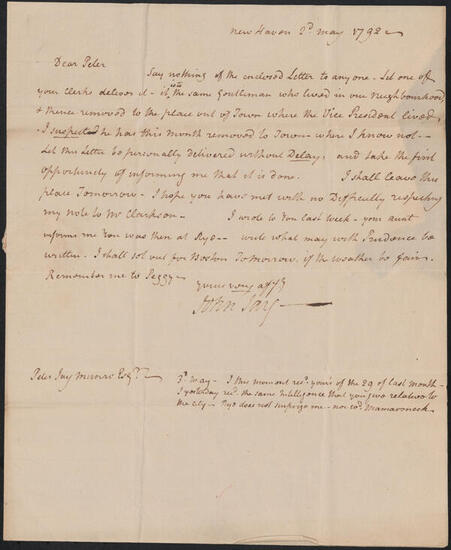 New Haven 2d. May 1792 —
Dear Peter
Say nothing of the enclosed Letter to anyone - Let one of
your clerks deliver it - it is for the same Gentleman who lived in our Neighbourhood,
& thence removed to the place out of Town where the Vice President lived,
I suspected he has this month removed to Town - where I know not --
Let this Letter be personally delivered without Delay, and take the first
opportunity of informing me that it is done. I shall leave this
place Tomorrow - I hope you have met with no Difficulty respecting
my note to Mr Clarkson - I wrote to You last week - your aunt
informs me You was then at Rye -- write what may with Prudence be
written. I shall set out for Boston Tomorrow, if the weather be fair.
Remember me to Peggy -
yours very affy
John Jay —
Peter Jay Munro Esqr. — 3d. May - I this moment recd. yours of the 29 of last month -
I yesterday recd. the same Intelligence that you give relative to
the city - Rye does not surprize me - nor Mamaroneck.